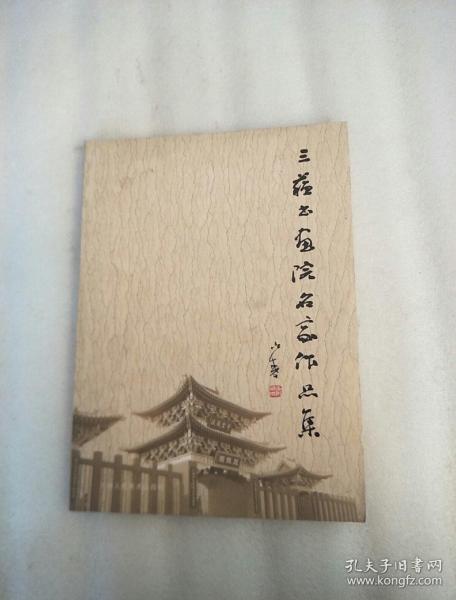 三蘇书画院名家作品集
孔夫子旧书网
www.kongfz.com